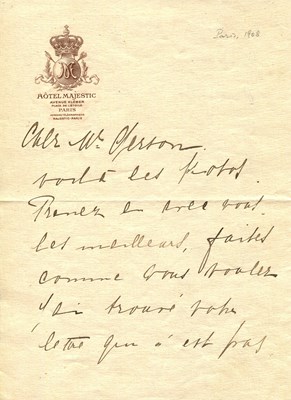 Paris, 1908
HÔTEL MAJESTIC
AVENUE KLÉBER
PLACE DE L'ÉTOILE
PARIS
ADRESSE TÉLÉGRAPHIQUE
MAJESTIC-PARIS
Cher Mr Gerson.
voilà les Fotos.
Prenez en avec vous.
les meilleurs, faites
comme vous voulez
j'ai trouvé votre
lettre que c'est pas